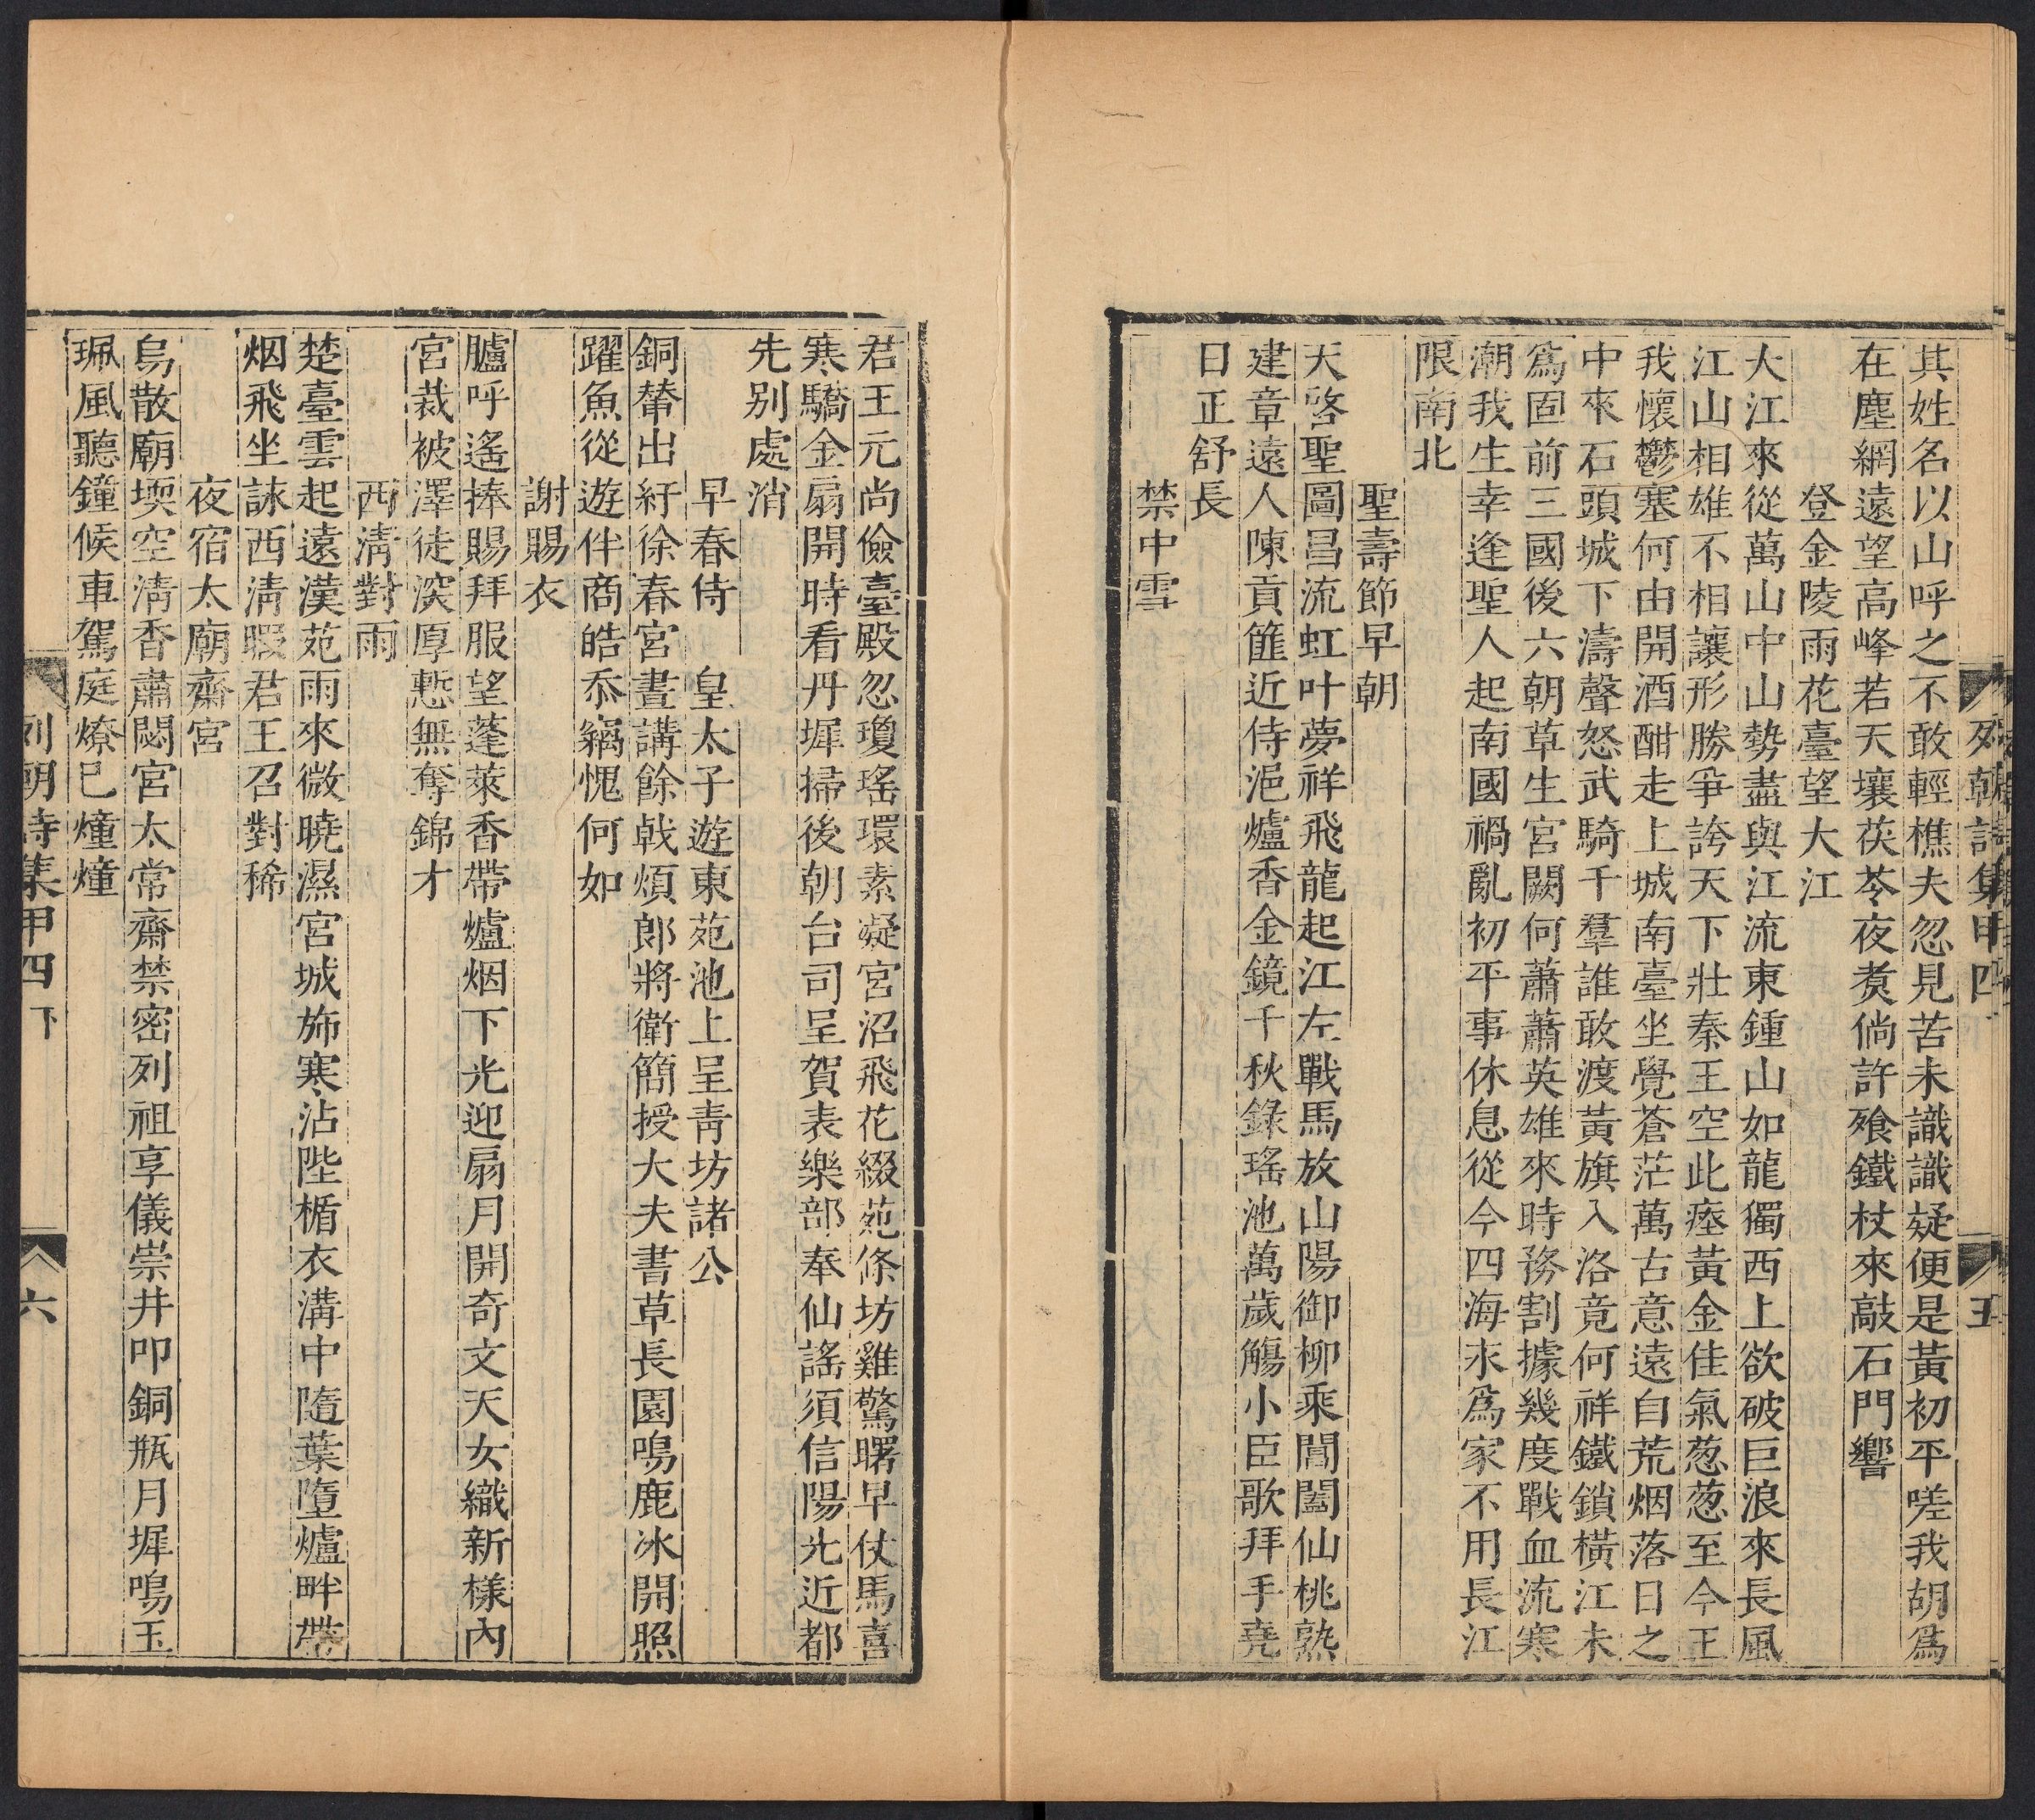 列朝詩集甲四 五
其姓名以山呼之不敢輕樵夫忽見苦未識識疑便是黃初平嗟我胡爲
在塵網遠望高峰若天壤茯苓夜煑倘許飱鐵杖來敲石門響
登金陵雨花臺望大江
大江來從萬山中山勢盡與江流東鍾山如龍獨西上欲破巨浪乘長風
江山相雄不相讓形勝爭誇天下壯秦王空此瘞黃金佳氣葱葱至今王
我懷鬱塞何由開酒酣走上城南臺坐覺蒼茫萬古意遠自荒烟落日之
中來石頭城下濤聲怒武騎千羣誰敢渡黃旗入洛竟何祥鐵鎖橫江未
爲固前三國後六朝草生宮闕何蕭蕭英雄來時務割據幾度戰血流寒
潮我生幸逢聖人起南國禍亂初平事休息從今四海永爲家不用長江
限南北
聖壽節早朝
天啓聖圖昌流虹叶夢祥飛龍起江左戰馬放山陽御柳乘閶闔仙桃熟
建章遠人陳貢篚近侍浥爐香金鏡千秋錄瑤池萬歲觴小臣歌拜手堯
日正舒長
禁中雪
君王元尚儉臺殿忽瓊瑤環素凝宮沼飛花綴苑條坊雞驚曙早仗馬喜
寒驕金扇開時看丹墀掃後朝台司呈賀表樂部奉仙謠須信陽光近都
先別處消
早春侍 皇太子遊東苑池上呈青坊諸公
銅輦出紆徐春宮晝講餘戟煩郎將衛簡授大夫書草長園鳴鹿冰開照
躍魚從遊伴商皓忝竊愧何如
謝賜衣
臚呼遙捧賜拜服望蓬萊香帶爐烟下光迎扇月開奇文天女織新樣內
宮裁被澤徒深厚慙無奪錦才
西清對雨
楚臺雲起遠漢苑雨來微曉濕宮城斾寒沾陛楯衣溝中隨葉墮爐畔帶
烟飛坐詠西清暇君王召對稀
夜宿太廟齋宮
烏散廟堧空清香肅閟宮太常齋禁密列祖享儀崇井叩銅瓶月墀鳴玉
珮風聽鐘候車駕庭燎已爞爞
列朝詩集甲四下 六